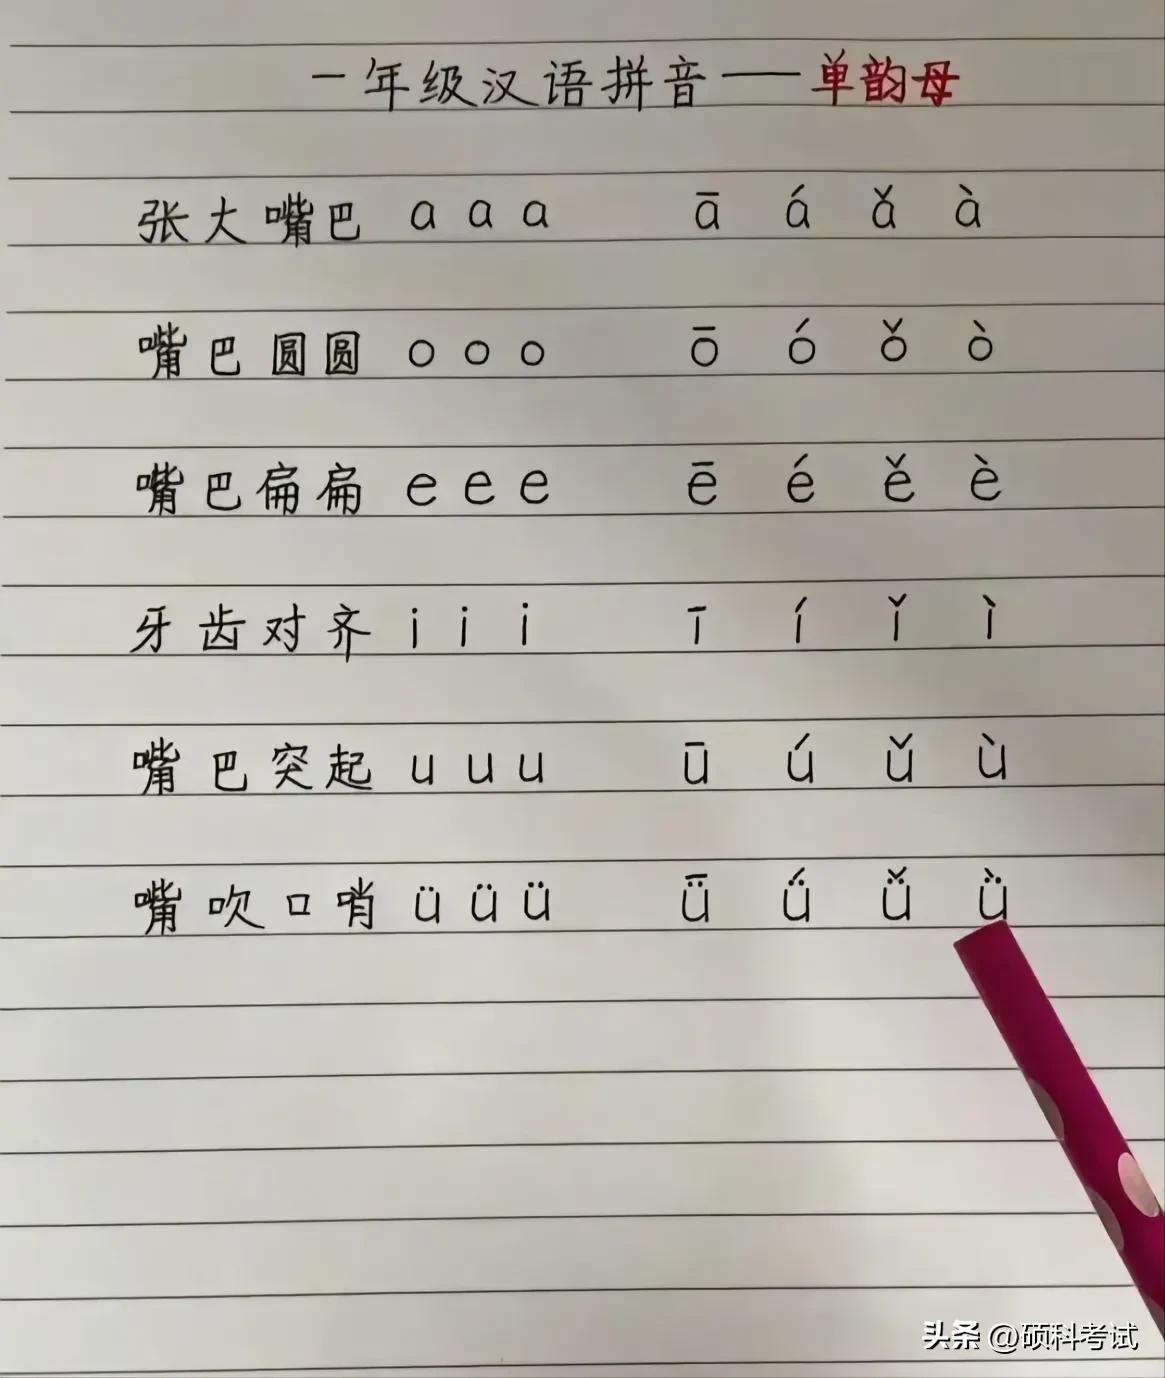 一年级汉语拼音——单韵母
张大嘴巴 a a a ā á ǎ à
嘴巴圆圆 o o o ō ó ǒ ò
嘴巴扁扁 e e e ē é ě è
牙齿对齐 i i i ī í ǐ ì
嘴巴突起 u u u ū ú ǔ ù
嘴吹口哨 ü ü ü ǖ ǘ ǚ ǜ
头条 @硕科考试